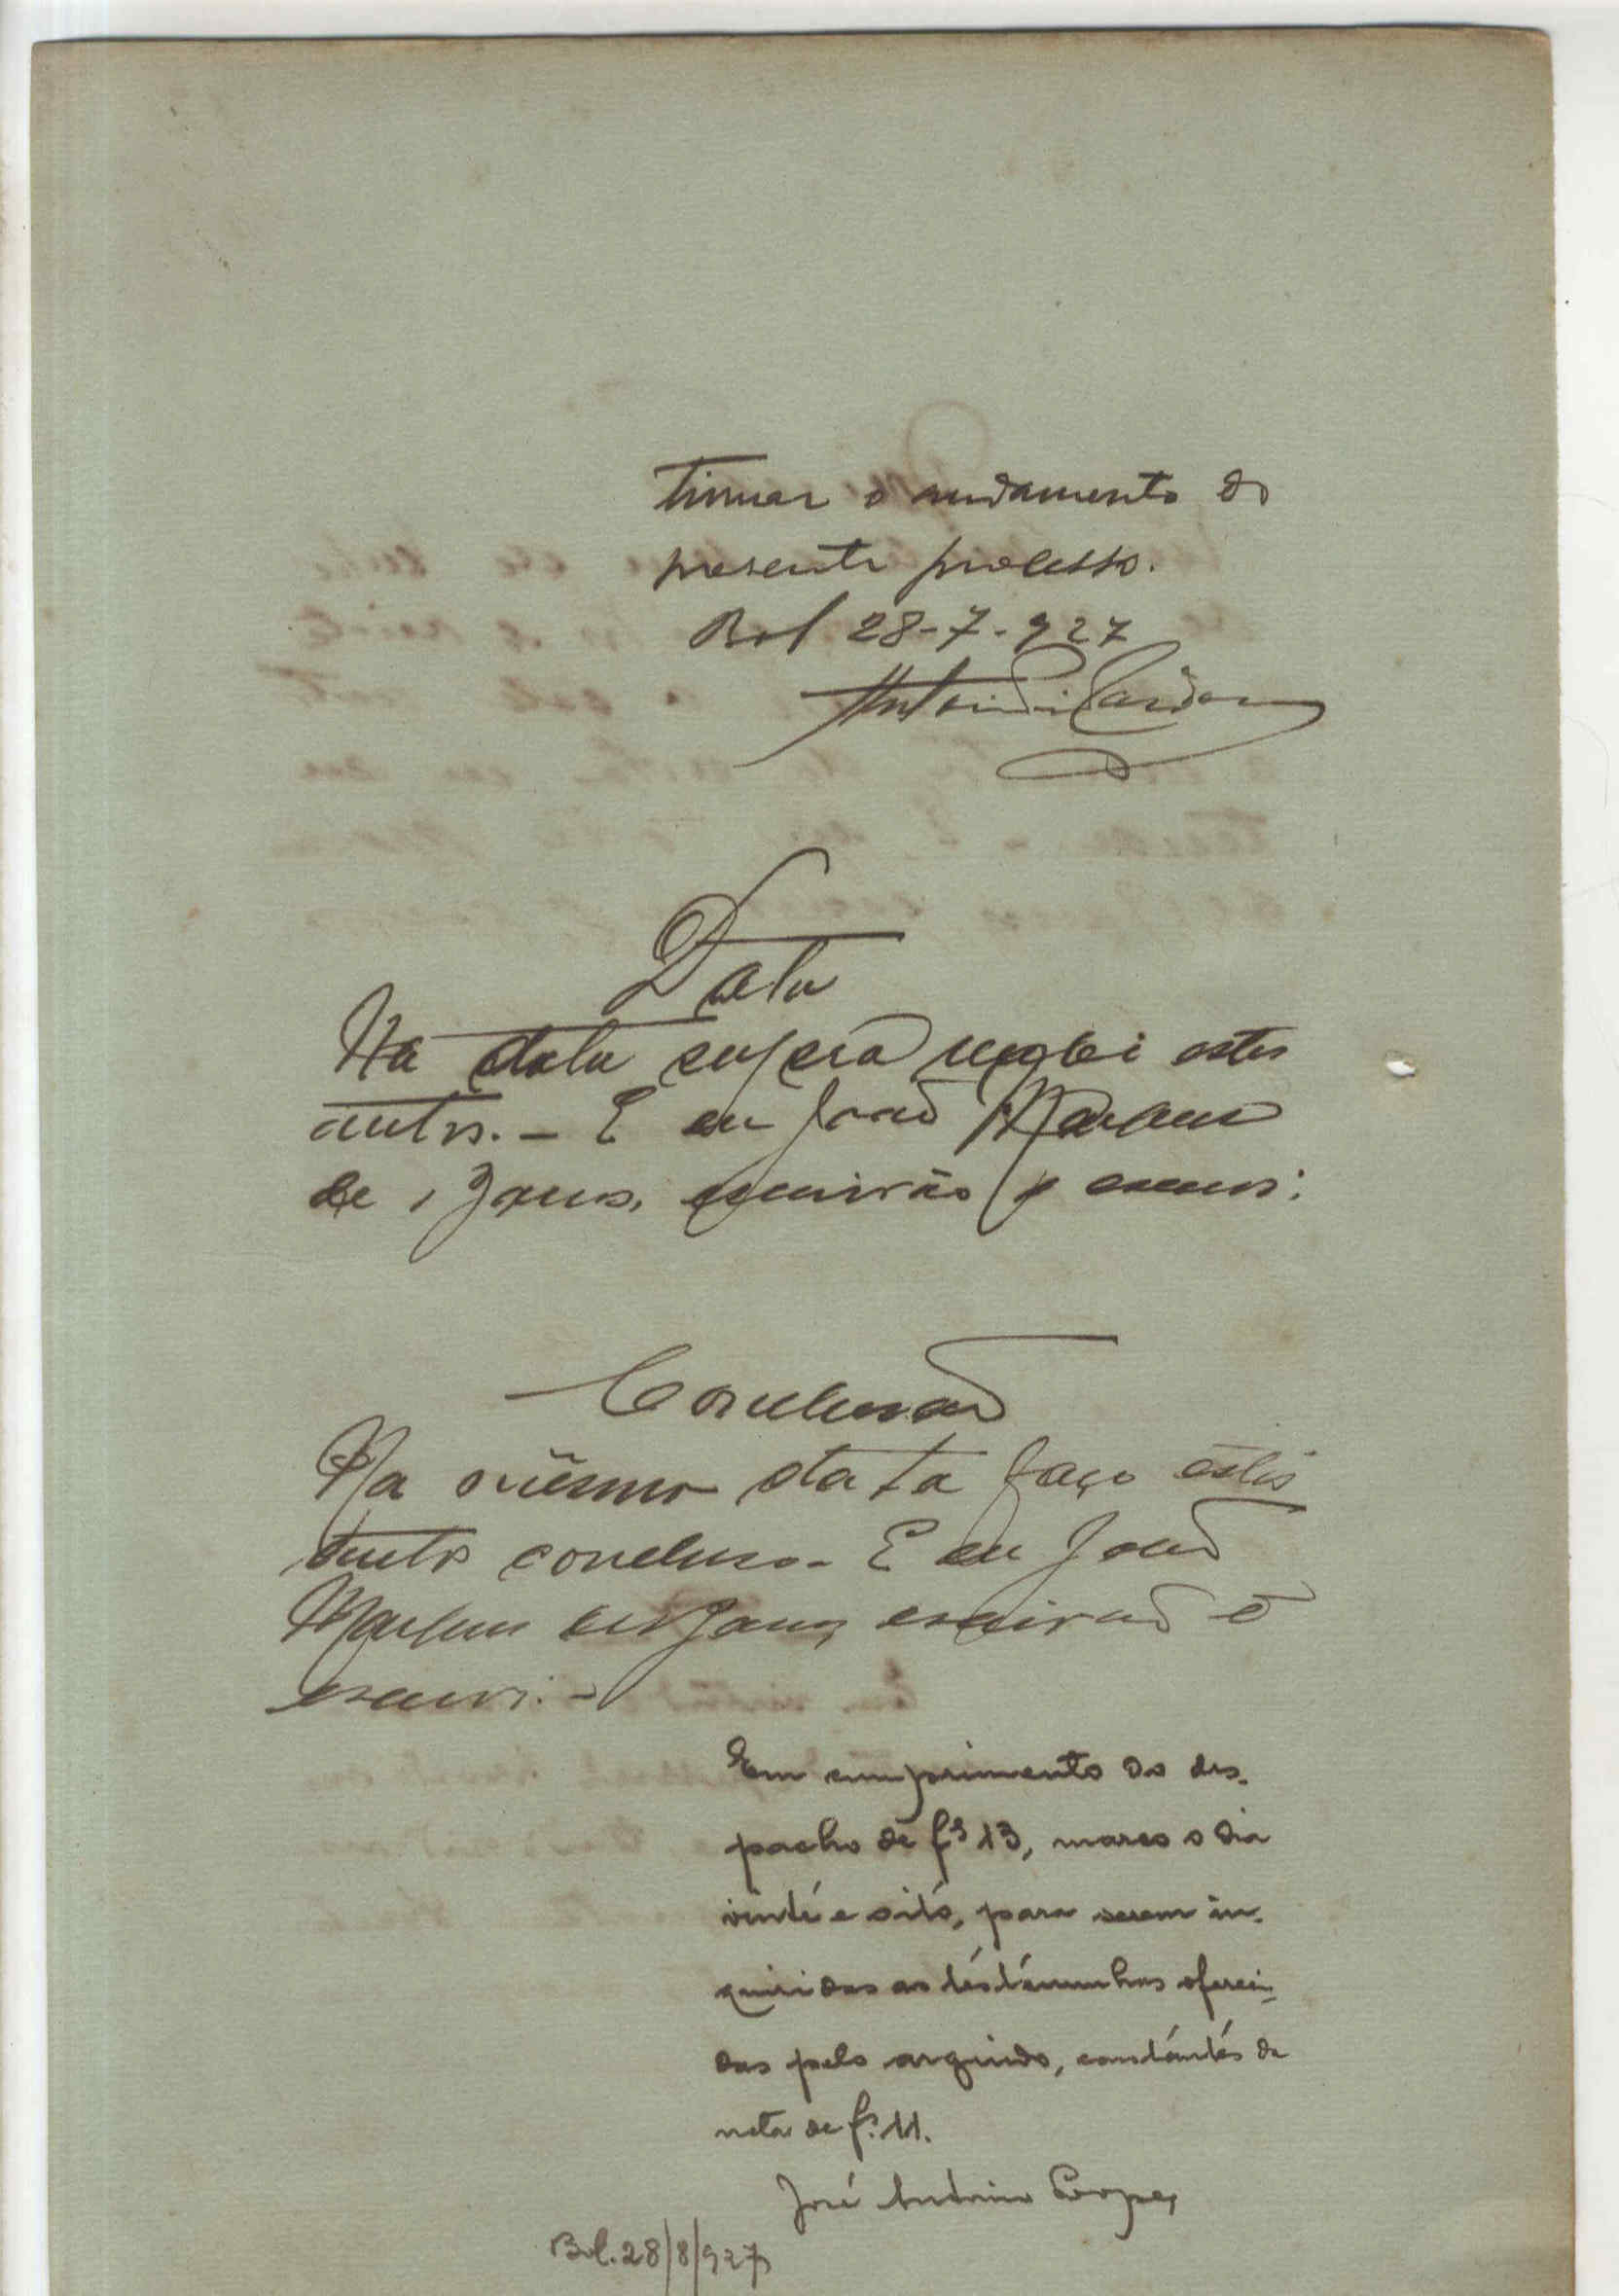 tinuar o andamento do
presente processo.
Bol 28-7-927
Data
Na data supra recebi estes
autos. - E eu João Marques
de escrivão o escrevi.
Conclusão
Na mesma data faço estes
autos conclusos - E eu João
Marques escrivão o
escrevi. -
Em cumprimento do des-
pacho de fs 13, marco o dia
vinte e oito, para serem in-
quiridas as testemunhas ofereci-
das pelo arguido, constantes da
nota de fs. 11.
José Antonio Lopes
Bol. 28/8/927